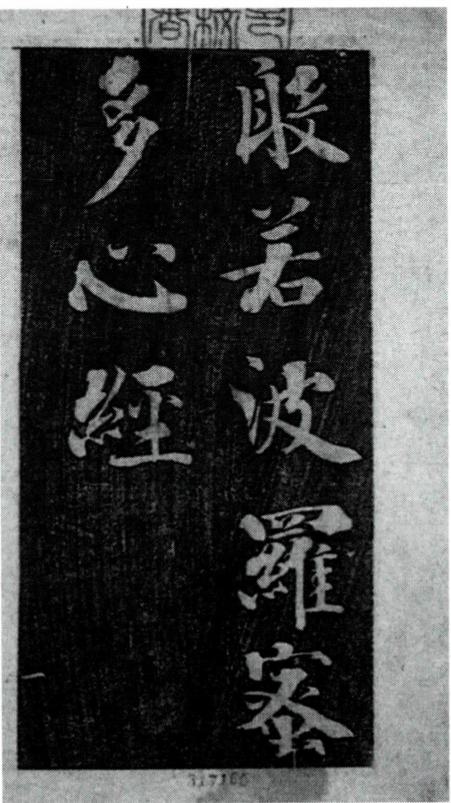 般若波羅蜜
多心經
317166